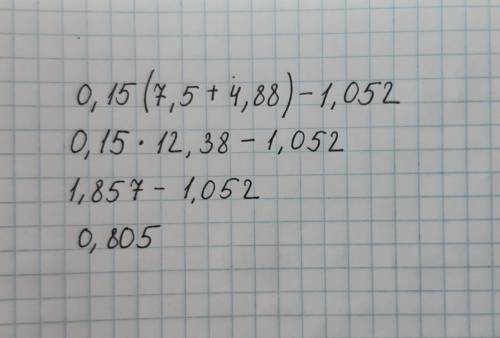 0,15(7,5+4,88)-1,052
0,15·12,38-1,052
1,857-1,052
0,805